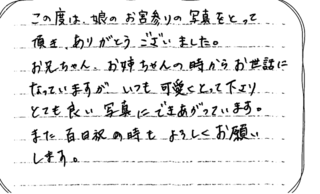 この度は、娘のお宮参りの写真をとって
頂き、ありがとうございました。
お兄ちゃん、お姉ちゃんの時からお世話に
なっていますが、いつも可愛くとって下さり
とても良い写真にできあがっています。
また百日祝の時もよろしくお願い
します。